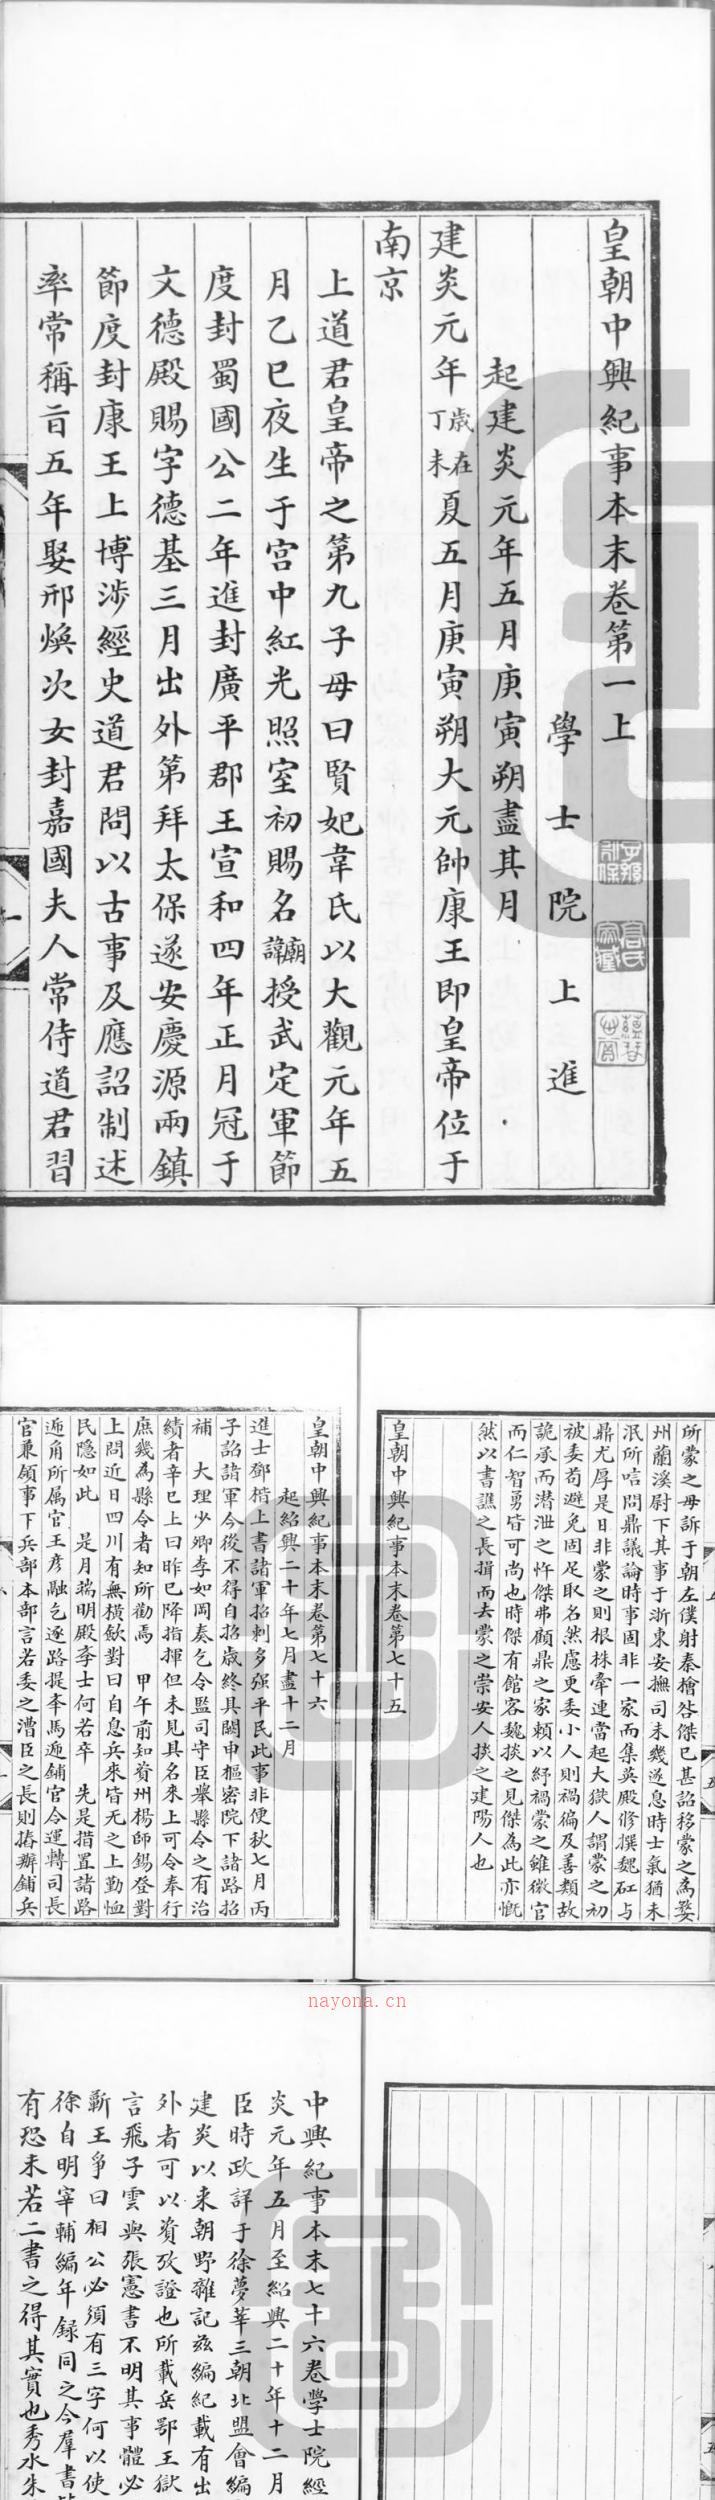 皇朝中興紀事本末卷第一上
學士院上進
起建炎元年五月庚寅朔盡其月
建炎元年歲在丁未夏五月庚寅朔大元帥康王即皇帝位于
南京
上道君皇帝之第九子母曰賢妃韋氏以大觀元年五
月乙巳夜生于宮中紅光照室初賜名廟諱授武定軍節
度封蜀國公二年進封廣平郡王宣和四年正月冠于
文德殿賜字德基三月出外第拜太保遂安慶源兩鎮
節度封康王上博涉經史道君問以古事及應詔制述
率常稱旨五年娶邢煥次女封嘉國夫人常侍道君習
所蒙之母訴于朝左僕射秦檜咎傑已甚詔移蒙之為婺
州蘭溪尉下其事于浙東安撫司未幾遂息時士氣猶未
泯所言問鼎議論時事固非一家而集英殿修撰魏矼与
鼎尤厚是日非蒙之則根株牽連當起大獄人謂蒙之初
被委苟避免固足取名然慮更委小人則禍徧及善類故
詭承而潛泄之忤傑弗顧鼎之家賴以紓禍蒙之雖微官
而仁智勇皆可尚也時傑有館客魏掞之見傑為此亦慨
然以書譙之長揖而去蒙之崇安人掞之建陽人也
皇朝中興紀事本末卷第七十五
皇朝中興紀事本末卷第七十六
起紹興二十年七月盡十二月
進士鄧楷上書諸軍招刺多強平民此事非便秋七月丙
子詔諸軍今後不得自招歲終具闕申樞密院下諸路招
補 大理少卿李如岡奏乞令監司守臣舉縣令之有治
績者辛巳上曰昨已降指揮但未見具名來上可令奉行
庶幾為縣令者知所勸焉 甲午前知資州楊師錫登對
上問近日四川有無橫斂對曰自息兵來皆无之上勤恤
民隱如此 是月端明殿學士何若卒 先是措置諸路
遞角所属官王彥融乞逐路提舉馬遞鋪官令運轉司長
官兼領事下兵部本部言若委之漕臣之長則揍辦鋪兵
nayona.cn
中興紀事本末七十六卷學士院經
炎元年五月至紹興二十年十二月
臣時政詳于徐夢莘三朝北盟會編
建炎以来朝野雜記茲編紀載有出
外者可以資攷證也所載岳鄂王獄
言飛子雲與張憲書不明其事體必
蘄王爭曰相公必須有三字何以使
徐自明宰輔編年録同之今羣書
有恐未若二書之得其實也秀水朱